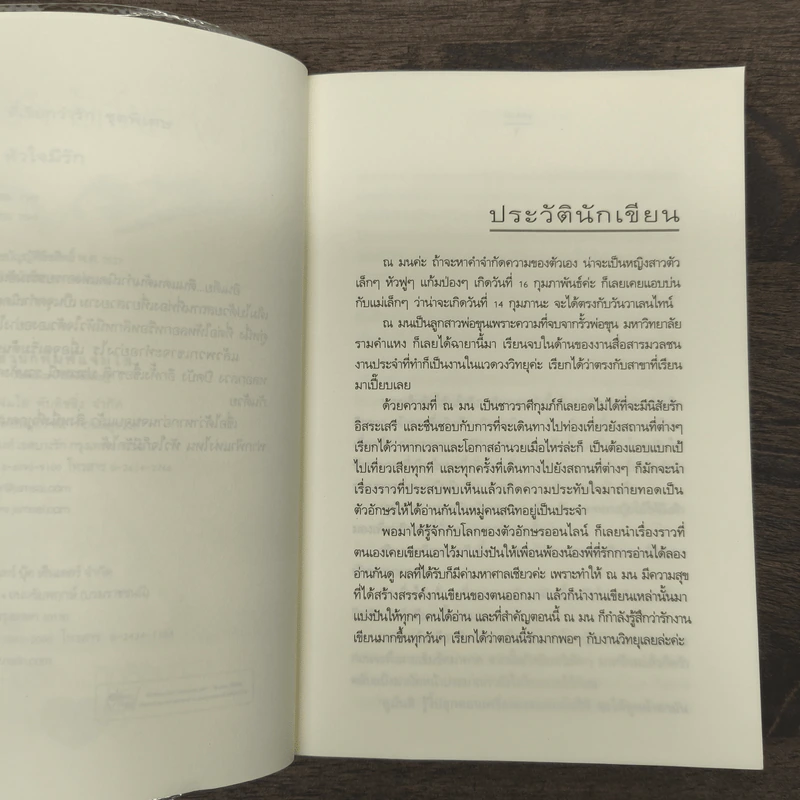 ประวัตินักเขียน
ณ มนค่ะ ถ้าจะหาคำจำกัดความของตัวเอง น่าจะเป็นหญิงสาวตัว
เล็กๆ หัวฟูๆ แก้มป่องๆ เกิดวันที่ 16 กุมภาพันธ์ค่ะ ก็เลยเคยแอบบ่น
กับแม่เล็กๆ ว่าน่าจะเกิดวันที่ 14 กุมภานะ จะได้ตรงกับวันวาเลนไทน์
ณ มนเป็นลูกสาวพ่อขุนเพราะความที่จบจากรั้วพ่อขุน มหาวิทยาลัย
รามคำแหง ก็เลยได้ฉายานี้มา เรียนจบในด้านของงานสื่อสารมวลชน
งานประจำที่ทำก็เป็นงานในแวดวงวิทยุค่ะ เรียกได้ว่าตรงกับสาขาที่เรียน
มาเปี๊ยบเลย
ด้วยความที่ ณ มน เป็นชาวราศีกุมภ์ก็เลยอดไม่ได้ที่จะมีนิสัยรัก
อิสระเสรี และชื่นชอบกับการที่จะเดินทางไปท่องเที่ยวยังสถานที่ต่างๆ
เรียกได้ว่าหากเวลาและโอกาสอำนวยเมื่อไหร่ละก็ เป็นต้องแอบแบกเป้
ไปเที่ยวเสียทุกที และทุกครั้งที่เดินทางไปยังสถานที่ต่างๆ ก็มักจะนำ
เรื่องราวที่ประสบพบเห็นแล้วเกิดความประทับใจมาถ่ายทอดเป็น
ตัวอักษรให้ได้อ่านกันในหมู่คนสนิทอยู่เป็นประจำ
พอมาได้รู้จักกับโลกของตัวอักษรออนไลน์ ก็เลยนำเรื่องราวที่
ตนเองเคยเขียนเอาไว้มาแบ่งปันให้เพื่อนพ้องน้องพี่ที่รักการอ่านได้ลอง
อ่านกันดู ผลที่ได้รับก็มีค่ามหาศาลเชียวค่ะ เพราะทำให้ ณ มน มีความสุข
ที่ได้สร้างสรรค์งานเขียนของตนออกมา แล้วก็นำงานเขียนเหล่านั้นมา
แบ่งปันให้ทุกๆ คนได้อ่าน และที่สำคัญตอนนี้ ณ มน ก็กำลังรู้สึกว่ารักงาน
เขียนมากขึ้นทุกวันๆ เรียกได้ว่าตอนนี้รักมากพอๆ กับงานวิทยุเลยล่ะค่ะ